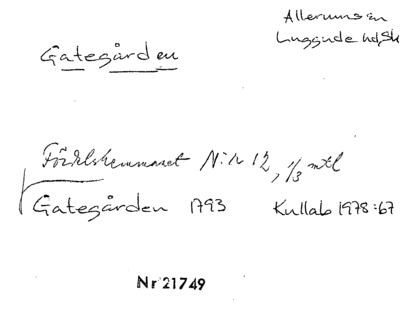 Allerums sn
Luggude hd, Sk
Gategården
Förädlshemmanet N:o 12, 1/3 mtl
Gategården 1793 Kullab 1978:67
Nr 21749